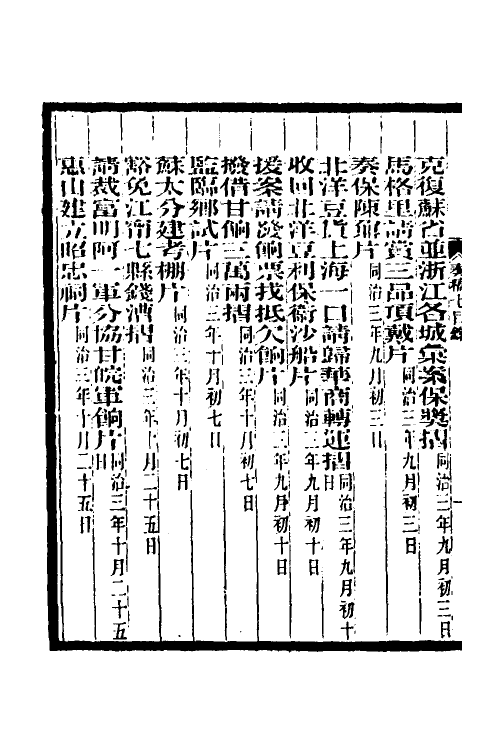 奏稿七目錄 一
克復蘇省並浙江各城彙案保獎摺 同治三年九月初三日
馬格里請賞三品頂戴片 同治三年九月初三日
奏保陳鼐片 同治三年九月初三日
北洋豆貨上海一口請歸華商轉運摺 同治三年九月初十日
收回北洋豆利保衞沙船片 同治三年九月初十日
援案請發餉票找抵欠餉片 同治三年九月初十日
撥借甘餉三萬兩摺 同治三年十月初七日
監臨鄉試片 同治三年十月初七日
蘇太分建考棚片 同治三年十月初七日
豁免江甯七縣錢漕摺 同治三年十月二十五日
請裁富明阿一軍分協甘皖軍餉片 同治三年十月二十五日
惠山建立昭忠祠片 同治三年十月二十五日